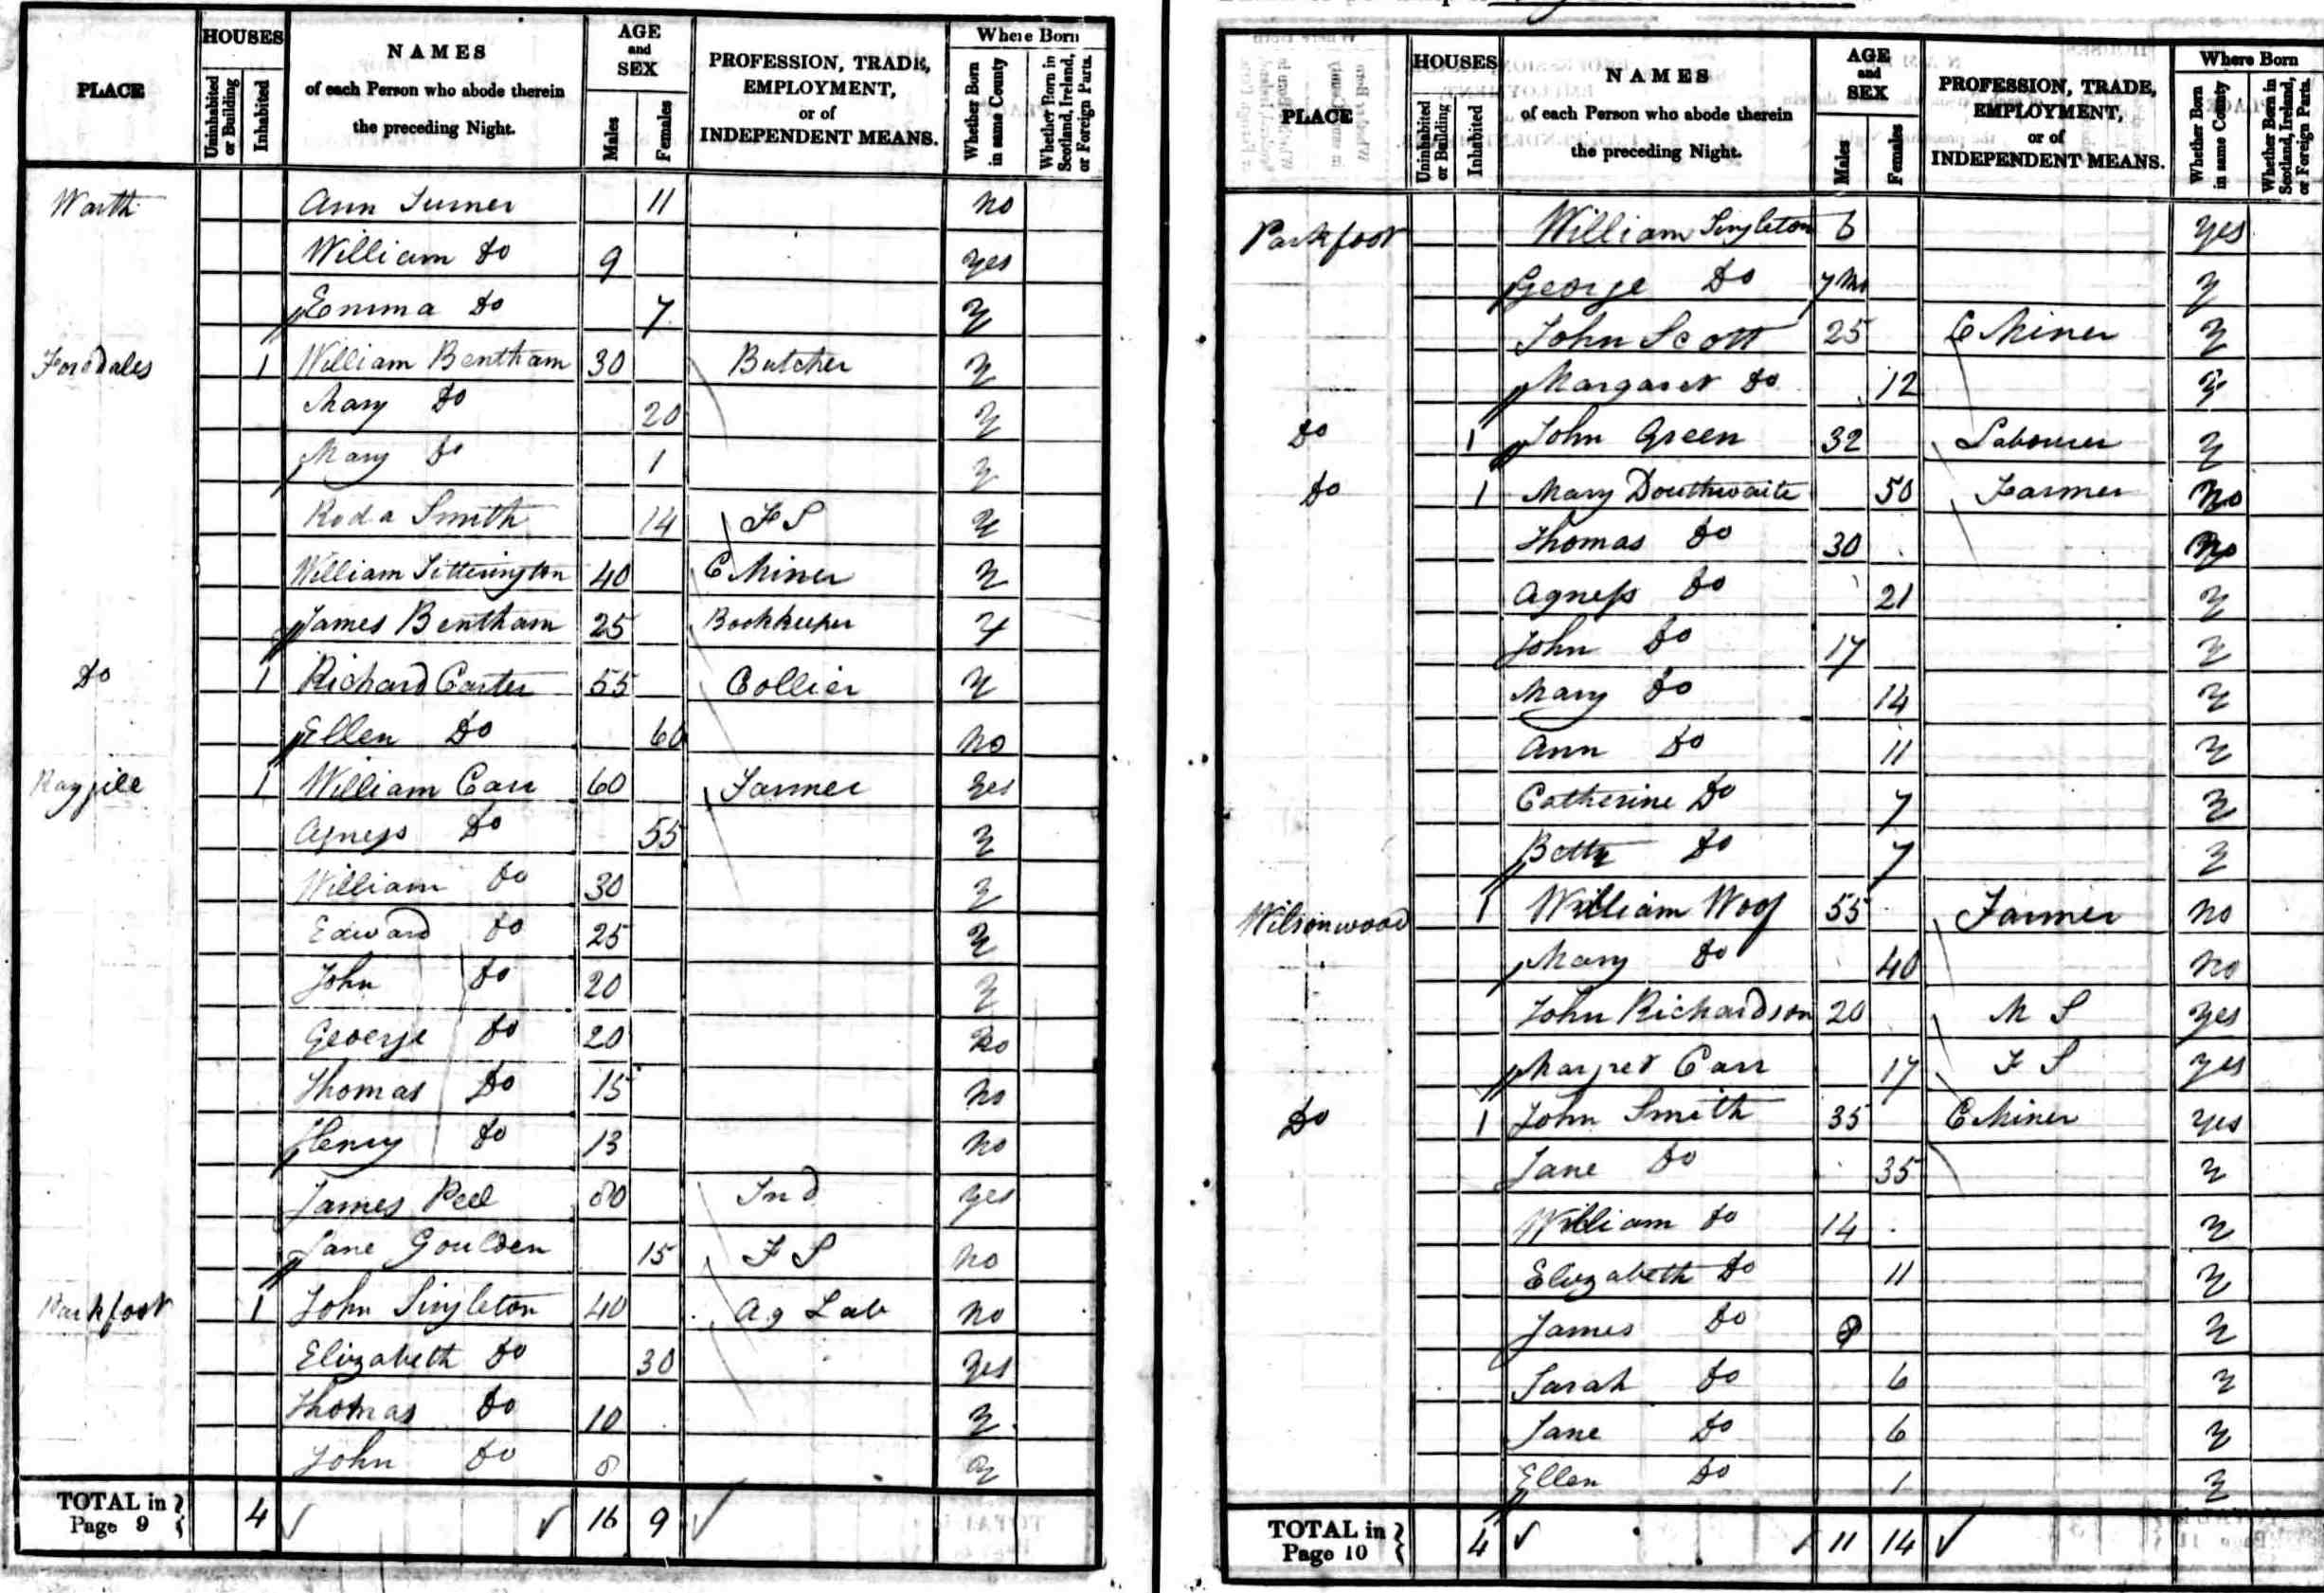 PLACE HOUSES Uninhabited or Building Inhabited NAMES of each Person who abode therein the preceding Night. AGE and SEX Males Females PROFESSION, TRADE, EMPLOYMENT, or of INDEPENDENT MEANS. Where Born Whether Born in same County Whether Born in Scotland, Ireland, or Foreign Parts.
Warth Ann Turner 11 no
William Do 9 yes
Emma Do 7 y
Forddales 1 William Bentham 30 Butcher y
Mary Do 20 y
Mary Do 1 y
Roda Smith 14 F S y
William Titterington 40 C Miner y
James Bentham 25 Bookkeeper y
Do 1 Richard Carter 55 Collier y
Ellen Do 60 no
1 William Carr 60 Farmer yes
Agness Do 55 y
William Do 30 y
Edward Do 25 y
John Do 20 y
George Do 20 no
Thomas Do 15 no
Henry Do 13 no
James Peel 80 Ind yes
Jane Goulden 15 F S no
Parkfoot 1 John Singleton 40 Ag Lab no
Elizabeth Do 30 yes
Thomas Do 10 y
John Do 8 y
TOTAL in Page 9 4 16 9
PLACE HOUSES Uninhabited or Building Inhabited NAMES of each Person who abode therein the preceding Night. AGE and SEX Males Females PROFESSION, TRADE, EMPLOYMENT, or of INDEPENDENT MEANS. Where Born Whether Born in same County Whether Born in Scotland, Ireland, or Foreign Parts.
Parkfoot William Singleton 6 yes
George Do 7 Mo y
John Scott 25 C Miner y
Margaret Do 12 y
Do 1 John Green 32 Labourer y
Do 1 Mary Douthwaite 50 Farmer no
Thomas Do 30 no
Agness Do 21 y
John Do 17 y
Mary Do 14 y
Ann Do 11 y
Catherine Do 7 y
Betty Do 7 y
Wilsonwood 1 William Woof 55 Farmer no
Mary Do 40 no
John Richardson 20 M S yes
Margret Carr 17 F S yes
Do 1 John Smith 35 C Miner yes
Jane Do 35 y
William Do 14 y
Elizabeth Do 11 y
James Do 8 y
Sarah Do 6 y
Jane Do 6 y
Ellen Do 1 y
TOTAL in Page 10 4 11 14